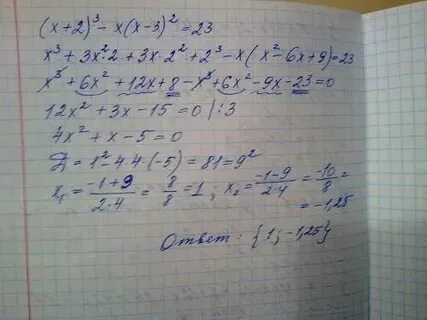 (x+2)³ - x(x-3)² = 23
x³ + 3x²2 + 3x·2² + 2³ - x(x² - 6x + 9) = 23
x³ + 6x² + 12x + 8 - x³ + 6x² - 9x - 23 = 0
12x² + 3x - 15 = 0 |:3
4x² + x - 5 = 0
Д = 1² - 4·4·(-5) = 81 = 9²
x₁ = (-1+9)/(2·4) = 8/8 = 1; x₂ = (-1-9)/(2·4) = -10/8 =
= -1,25
Ответ: {1; -1,25}